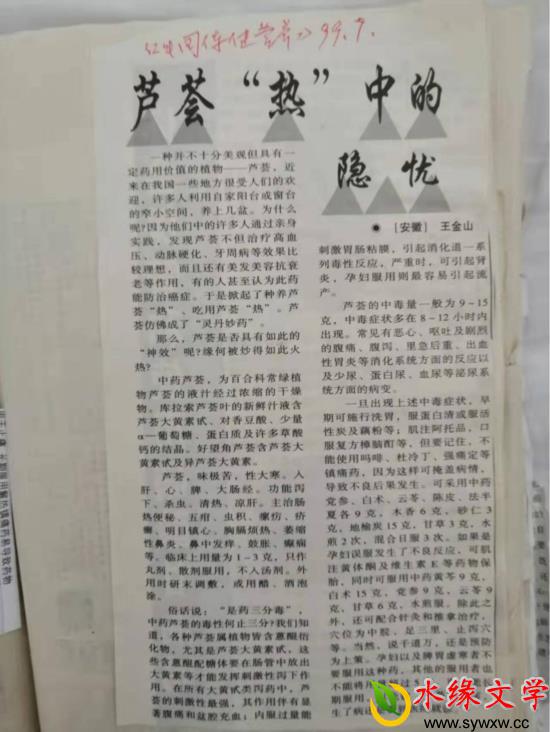 《中国保健营养》99.7.
芦荟“热”中的
隐忧
● [安徽] 王金山
一种并不十分美观但具有一
定药用价值的植物——芦荟，近
来在我国一些地方很受人们的欢
迎，许多人利用自家阳台或窗台
的窄小空间，养上几盆。为什么
呢?因为他们中的许多人通过亲身
实践，发现芦荟不但治疗高血
压、动脉硬化、牙周病等效果比
较理想，而且还有美发美容抗衰
老等作用，有的人甚至认为此药
能防治癌症。于是掀起了种养芦
荟“热”、吃用芦荟“热”。芦
荟仿佛成了“灵丹妙药”。
那么，芦荟是否具有如此的
“神效”呢?缘何被炒得如此火
热?
中药芦荟，为百合科常绿植
物芦荟的液汁经过浓缩的干燥
物。库拉索芦荟叶的新鲜汁液含
芦荟大黄素甙、对香豆酸、少量
α—葡萄糖、蛋白质及许多草酸
钙的结晶。好望角芦荟含芦荟大
黄素甙及异芦荟大黄素。
芦荟，味极苦，性大寒。入
肝、心、脾、大肠经。功能泻
下、杀虫、清热、凉肝。主治肠
热便秘、五疳、虫积、瘰疬、疥
癣、明目镇心、胸膈烦热、萎缩
性鼻炎、鼻中发痒、鼓胀、癫痫
等。临床上用量为1-3克，只作
丸剂、散剂服用，不入汤剂。外
用时研末调敷，或用醋、酒泡
涂。
俗话说：“是药三分毒”，
中药芦荟的毒性何止三分?我们知
道，各种芦荟属植物皆含蒽醌衍
化物，尤其是芦荟大黄素甙，这
些含蒽醌配糖体要在肠管中放出
大黄素等才能发挥刺激性泻下作
用。在所有大黄甙类泻药中，芦
荟的刺激性最强，其作用伴有显
著腹痛和盆腔充血；内服过量能
刺激胃肠粘膜，引起消化道一系
列毒性反应，严重时，可引起肾
炎，孕妇服用则最容易引起流
产。
芦荟的中毒量一般为9-15
克，中毒症状多在8-12小时内
出现。常见有恶心、呕吐及剧烈
的腹痛、腹泻、里急后重、出血
性胃炎等消化系统方面的反应以
及少尿、蛋白尿、血尿等泌尿系
统方面的病变。
一旦出现上述中毒症状，早
期可施行洗胃，服蛋白清或服活
性炭及藕粉等；肌注阿托品，口
服复方樟脑酊等，但要记住，不
能使用吗啡、杜冷丁、强痛定等
镇痛药，因为这样可掩盖病情，
导致不良后果发生。可采用中药
党参、白术、云苓、陈皮、法半
夏各9克，木香6克，砂仁3
克，地榆炭15克，甘草3克，水
煎2次，混合日服3次。如果是
孕妇误服发生了不良反应，可肌
注黄体酮及维生素E等药物保
胎，同时可服用中药黄芩9克，
白术15克，党参9克，云苓9
克，甘草6克，水煎服，除此之
外，还可配合针灸和推拿治疗，
穴位为中脘、足三里、止泻穴
等。当然，说千道万，还是预防
为上策。孕妇以及脾胃虚寒者不
要服用这种药，其他的服用者也
不能将用量超过5
期服用
生了病
水缘文学
www.sywxw.cc